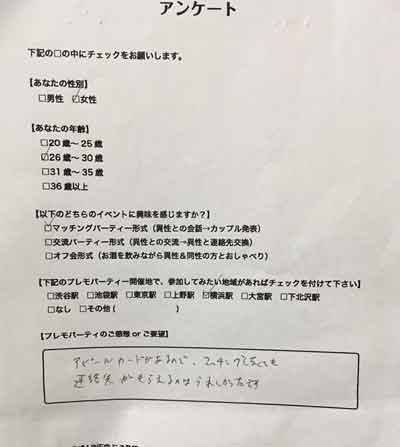 アンケート
下記の□の中にチェックをお願いします。
【あなたの性別】
□男性 ☑女性
【あなたの年齢】
□20歳〜25歳
☑26歳〜30歳
□31歳〜35歳
□36歳以上
【以下のどちらのイベントに興味を感じますか？】
☑マッチングパーティー形式（異性との会話→カップル発表）
□交流パーティー形式（異性との交流→異性と連絡先交換）
□オフ会形式（お酒を飲みながら異性＆同性の方とおしゃべり）
【下記のプレモパーティー開催地で、参加してみたい地域があればチェックを付けて下さい】
□渋谷駅 □池袋駅 □東京駅 □上野駅 ☑横浜駅 □大宮駅 □下北沢駅
□なし □その他（ ）
【プレモパーティのご感想 or ご要望】
アピールカードがあるので、マッチングしなくても
連絡先がもらえるのはうれしかったです